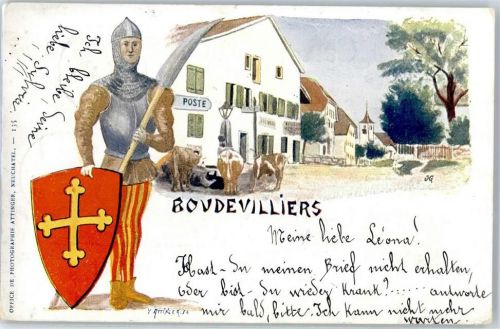 OFFICE DE PHOTOGRAPHIE ATTINGER, NEUCHATEL. — 135
Ich bleibe Deine
liebe Sylvia.
POSTE
BOVDEVILLIERS
Meine liebe Léona!
Hast-Du meinen Brief nicht erhalten,
Oder bist-Du wieder Krank?...... antworte
mir bald, bitte. Ich kann nicht mehr
warten.